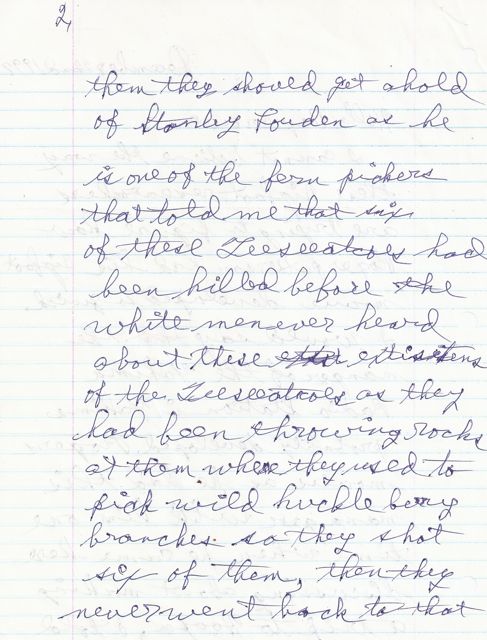 2,
them they should get ahold
of Stanley Louden as he
is one of the fern pickers
that told me that six
of these Zeeseeatcoes had
been killed before the
white men ever heard
about these
of the Zeeseeatcoes as they
had been throwing rocks
at them when they used to
pick wild huckle bery
branches so they shot
six of them, then they
never went back to that